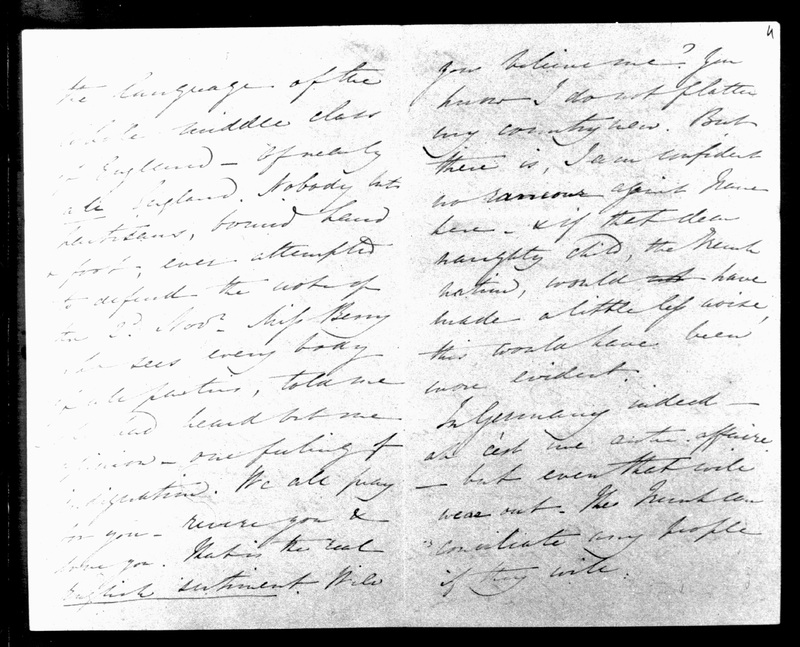 the language of the
whole middle class
in England – Of nearly
all England. Nobody but
partizans, bound hand
& foot, ever attempted
to defend the note of
the 3d. Novr. Miss Berry
who sees every body
of all parties, told me
had heard but one
opinion – one feeling of
indignation. We all pray
for you – revere you &
love you. That is the real
English sentiment. Will
4
you believe me? You
know I do not flatter
my countrymen. But
there is, I am confident
no rancour against France
here – & if that dear
naughty child, the French
nation, would have
made a little less noise,
this would have been
more evident.
In Germany indeed –
ah c'est une autre affaire.
– but even that will
wear out. The French can
conciliate any people
if they will.